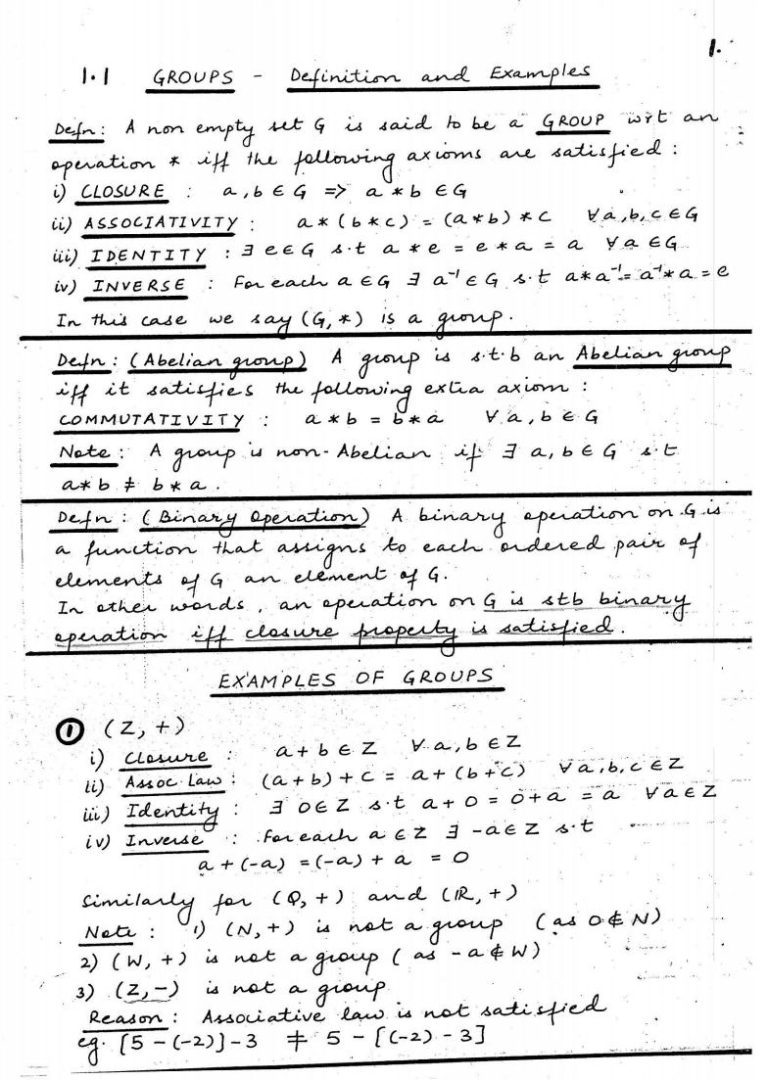 1.
1.1 GROUPS - Definition and Examples
Defn: A non empty set G is said to be a GROUP wrt an
operation * iff the following axioms are satisfied :
i) CLOSURE : a,b ∈ G => a * b ∈ G
ii) ASSOCIATIVITY : a * (b * c) = (a * b) * c ∀ a,b,c ∈ G
iii) IDENTITY : ∃ e ∈ G s.t a * e = e * a = a ∀ a ∈ G
iv) INVERSE : For each a ∈ G ∃ a⁻¹ ∈ G s.t a * a⁻¹ = a⁻¹ * a = e
In this case we say (G, *) is a group.
Defn : (Abelian group) A group is s.t.b an Abelian group
iff it satisfies the following extra axiom :
COMMUTATIVITY : a * b = b * a ∀ a, b ∈ G
Note : A group is non-Abelian if ∃ a, b ∈ G s.t
a * b ≠ b * a .
Defn : (Binary Operation) A binary operation on G is
a function that assigns to each ordered pair of
elements of G an element of G.
In other words, an operation on G is stb binary
operation iff closure property is satisfied.
EXAMPLES OF GROUPS
① (Z, +)
i) Closure : a + b ∈ Z ∀ a, b ∈ Z
ii) Assoc. Law : (a + b) + c = a + (b + c) ∀ a, b, c ∈ Z
iii) Identity : ∃ 0 ∈ Z s.t a + 0 = 0 + a = a ∀ a ∈ Z
iv) Inverse : For each a ∈ Z ∃ -a ∈ Z s.t
a + (-a) = (-a) + a = 0
Similarly for (Q, +) and (R, +)
Note : 1) (N, +) is not a group (as 0 ∉ N)
2) (W, +) is not a group (as -a ∉ W)
3) (Z, -) is not a group
Reason : Associative law is not satisfied
eg. [5 - (-2)] - 3 ≠ 5 - [(-2) - 3]